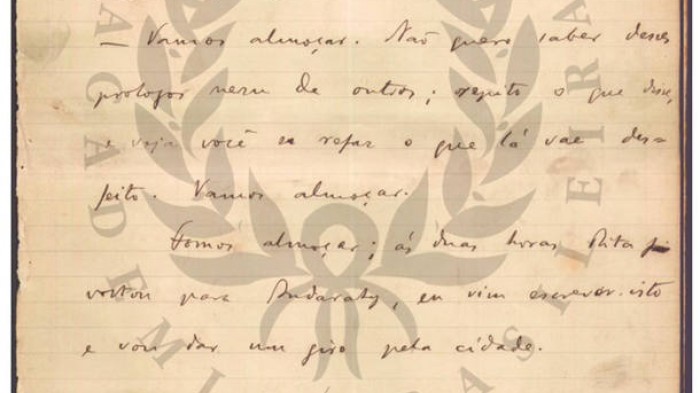 — Vamos almoçar. Não quero saber desses
prologos nem de outros; repito o que disse,
e veja você se refaz o que lá vae des-
feito. Vamos almoçar.
Fomos almoçar; ás duas horas Rita
voltou para Andarahy, eu vim escrever isto
e vou dar um giro pela cidade.
ACADEMI
ASILEIRA